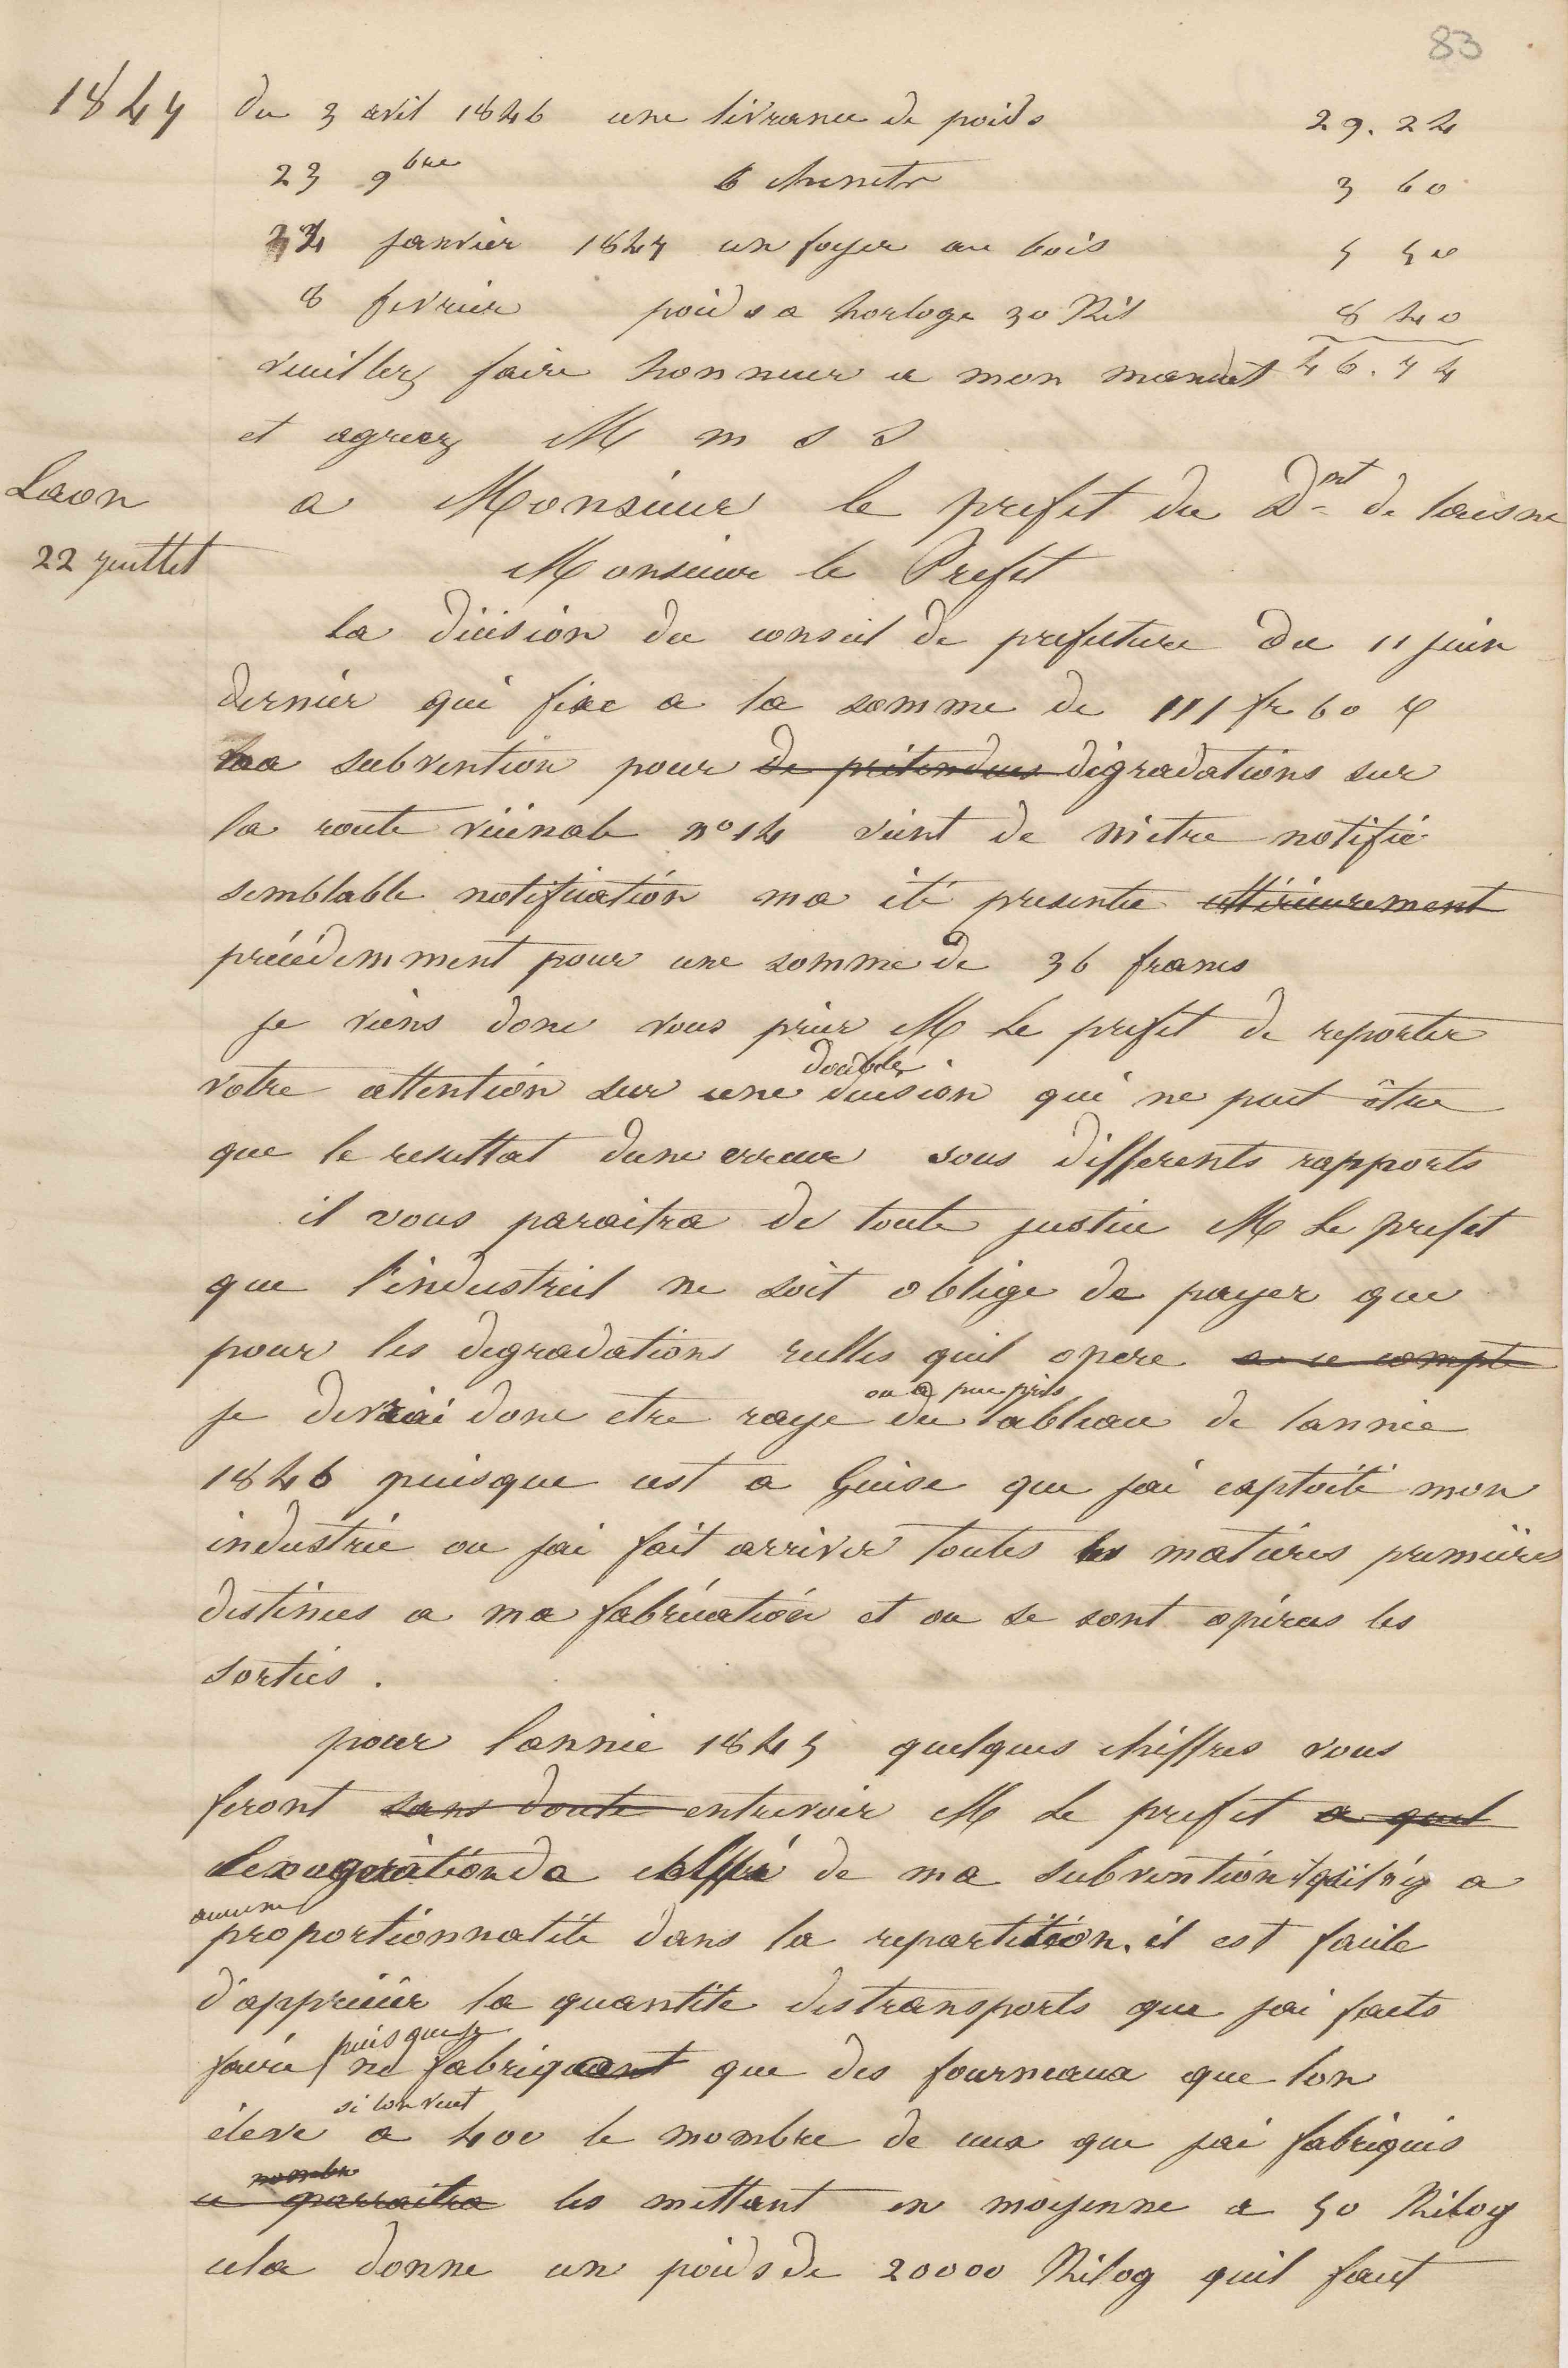 83
1847 du 3 avril 1846 une livrance de poids 29.24
23 9bre 6 chenets 3 60
24 janvier 1847 un foyer au bois 5 50
8 fevrier poids a horloge 30 Kil 8 40
veuillez faire honneur a mon mandat 46.74
et agreez M m s S
Laon a Monsieur le prefet du Dnt de laisne
22 juillet Monsieur le Prefet
la décision du conseil de prefecture du 11 juin
dernier qui fixe a la somme de 111 fr 60 c
la subvention pour de prétendues dégradations sur
la route vicinale no 14 vient de m'être notifié
semblable notification ma été presentée ultérieurement
précédemment pour une somme de 36 francs
je viens donc vous prier M Le prefet de reporter
votre attention sur une double décision qui ne peut être
que le resultat dune erreur sous differents rapports
il vous paraitra de toute justice M Le prefet
que l'industriel ne soit oblige de payer que
pour les degradations reelles quil opere a ce compte
ou a peu près
je devrai donc etre raye du tableau de lannée
1846 puisque cest a Guise que jai exploité mon
industrie ou jai fait arriver toutes les matières premières
destinées a ma fabrication et ou se sont opérées les
sorties.
pour lannée 1845 quelques chiffres vous
feront sans doute entrevoir M Le prefet a quel
lexageration da chiffre de ma subvention & quil n'y a
aucune
proportionnalité dans la repartition. il est facile
d'apprécier la quantité des transports que jai faits
puisque je
faire ne fabriquant que des fourneaux que lon
si lon veut
élève a 400 le nombre de ceux que jai fabriqués
nombre
ce paraitra les mettant en moyenne a 50 Kilog
cela donne un poids de 20000 Kilog quil faut